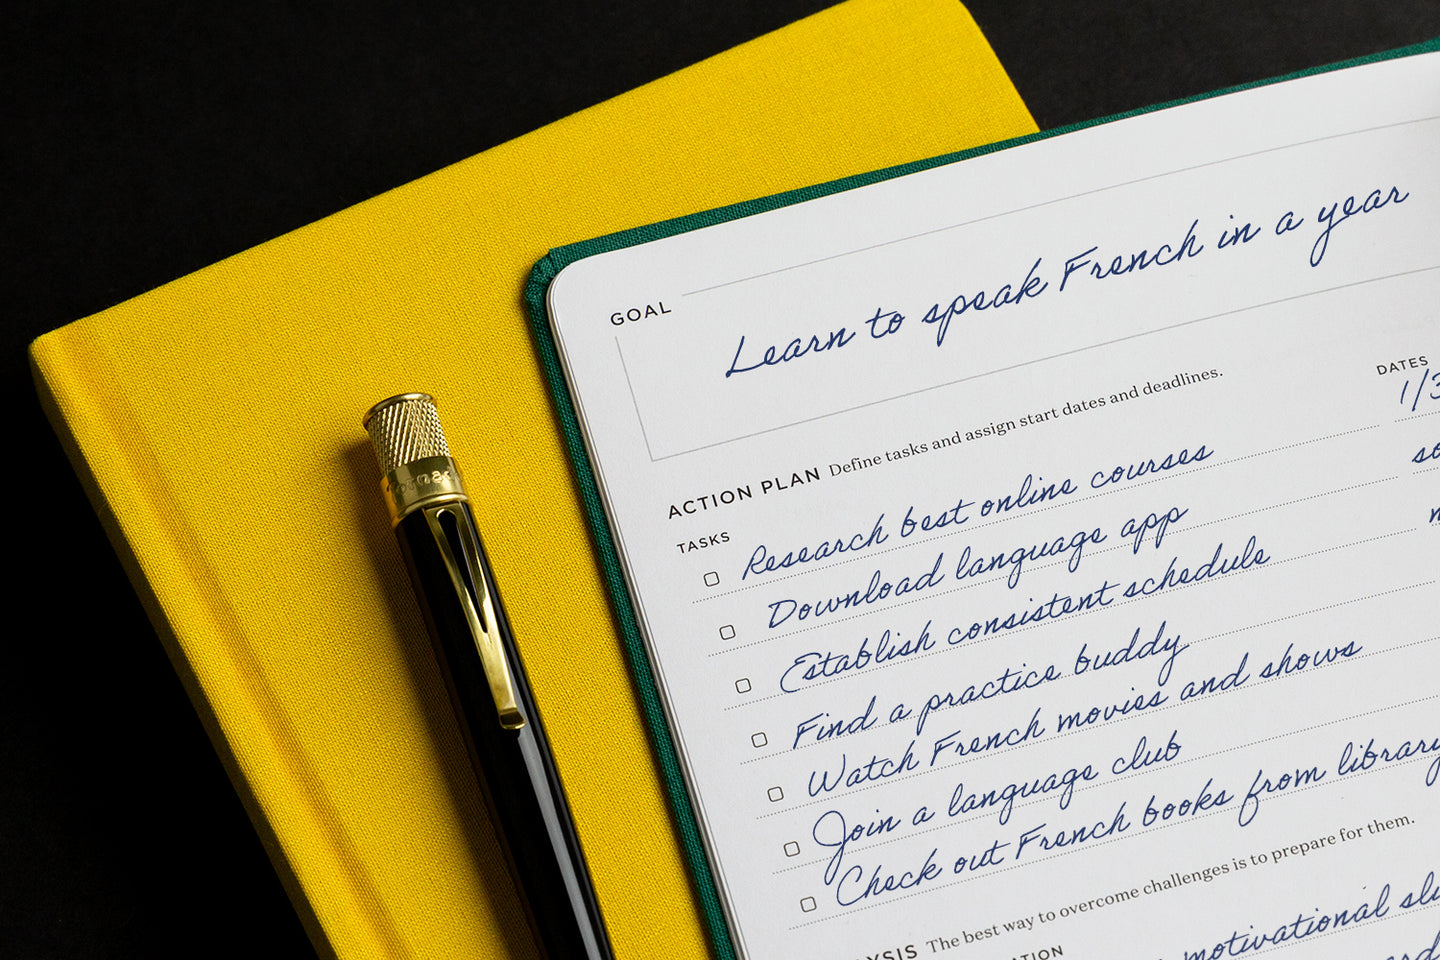 GOAL
Learn to speak French in a year
ACTION PLAN Define tasks and assign start dates and deadlines.
TASKS
DATES
1/3
Research best online courses
so
Download language app
Establish consistent schedule
Find a practice buddy
Watch French movies and shows
Join a language club
Check out French books from library
YSIS The best way to overcome challenges is to prepare for them.
ATION
motivational slu